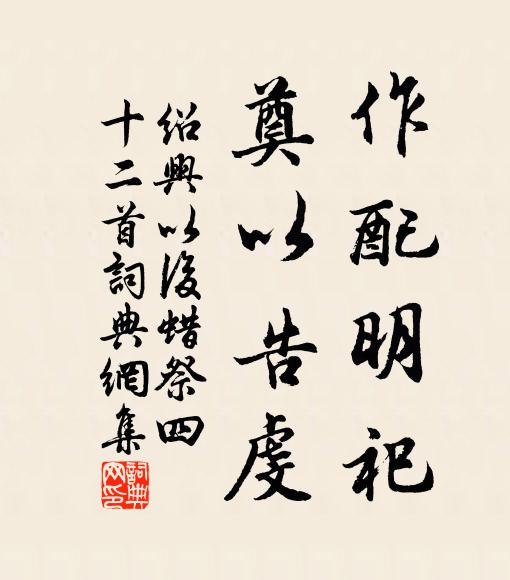 作配明祀
奠以告虔
紹興以後蜡祭四
十二首詞典網集
詞典网印